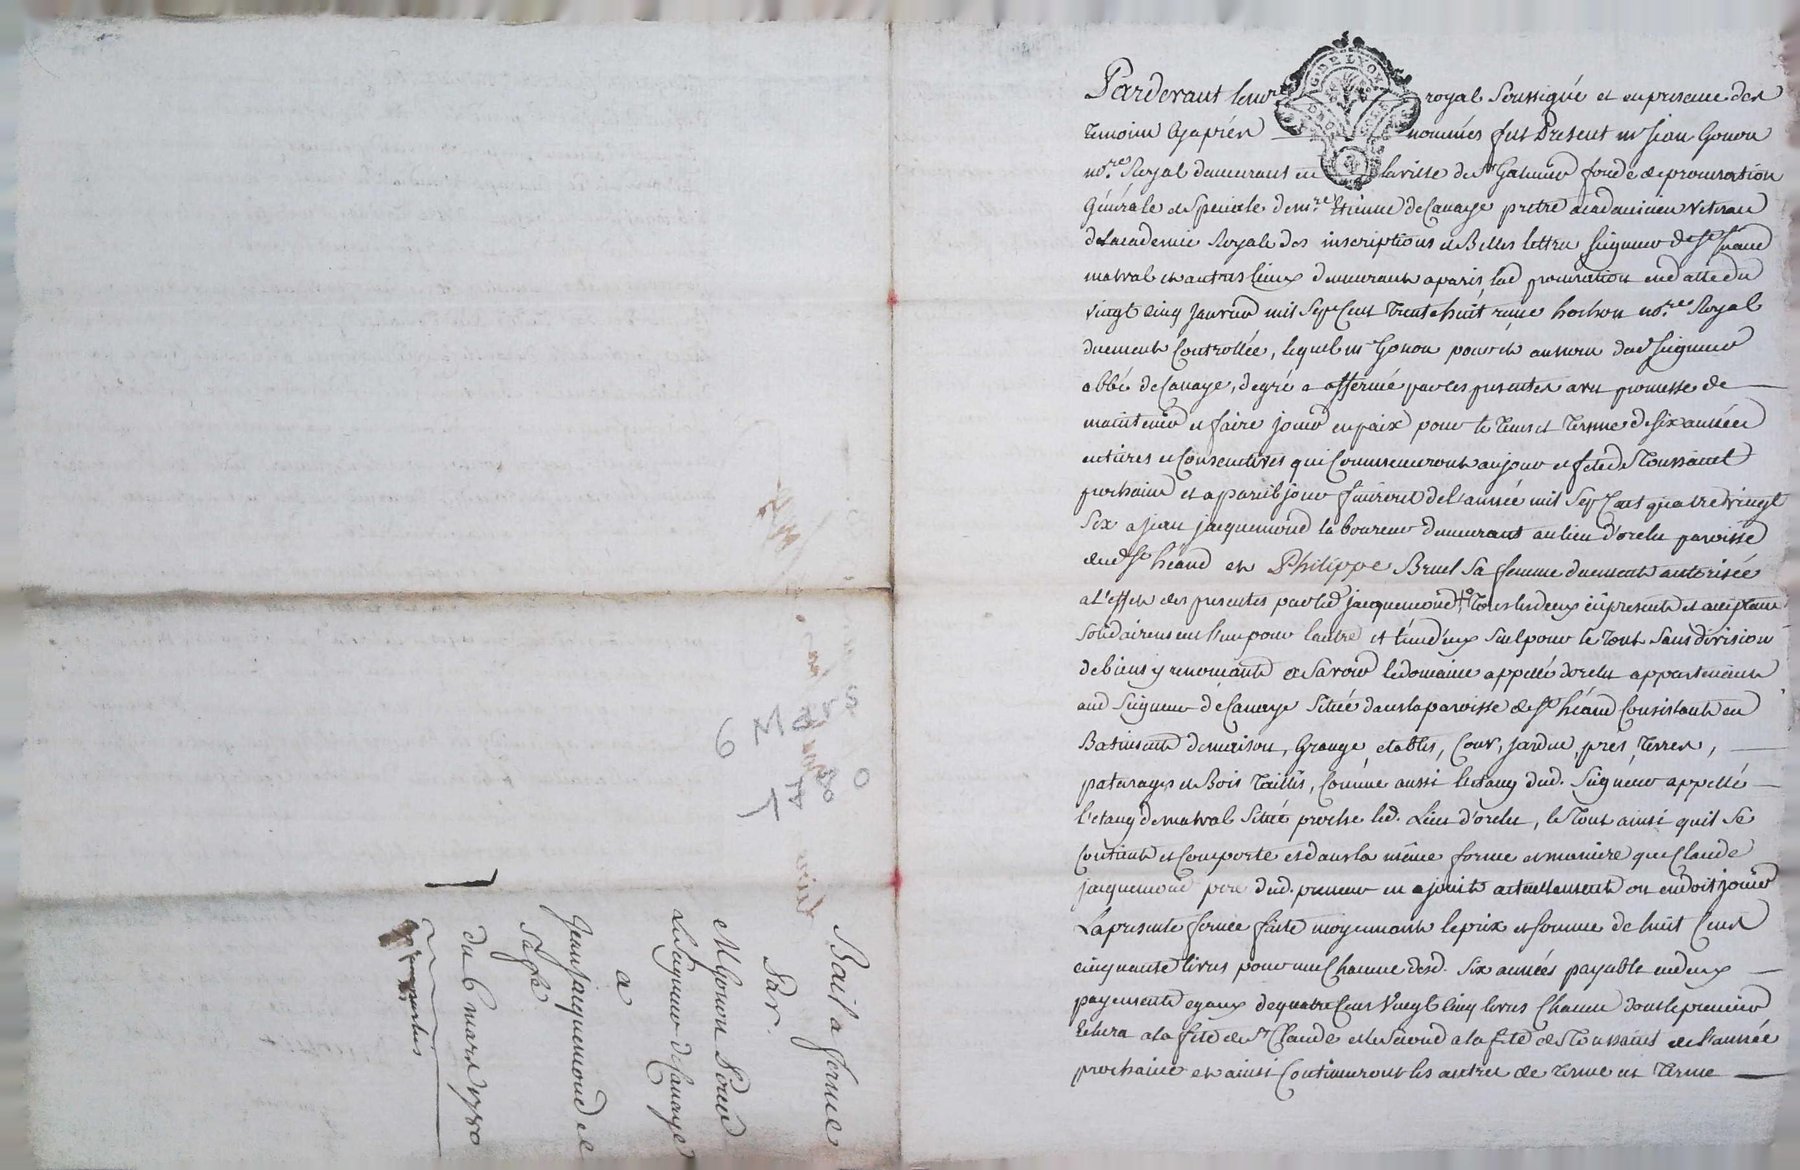 Pardevant le nore royal soussigné et en presence des
temoins cy après nommés fut Present mr Jean Gonon
nore Royal demeurant en la ville de St Galmier fondé de procuration
Générale et Speciale de mre Etienne de Canaye pretre academicien veteran
de lacademie Royale des inscriptions et Belles lettres, seigneur de St héand
malval et autres lieux demeurant a paris, lad procuration en datte du
vingt cinq Janvier mil Sept Cent trente huit reçue hochon nore Royal
duement Controllée, lequel mr Gonon pour et au nom dud seigneur
abbé de Canaye, de gré a affermé par ces presentes avec promesse de
maintenir et faire jouir en paix pour le tems et terme de six années
entieres et Consecutives qui Commenceront au jour et fete de Toussaint
prochaine et a pareil jour finiront de l'année mil Sept Cent quatre vingt
Six a jean jacquemond laboureur demeurant au lieu d'orelu paroisse
dud St héand et Philippe Bruel Sa femme duement autorisée
a L'effet des presentes par led jacquemond tous les deux icy presents et acceptant
Solidairement l'un pour lautre et l'un d'eux seul pour le tout sans division
de biens y renonçants et Savoir le domaine appellé dorelu appartenant
aud Seigneur de Canaye Situé dans la paroisse de St héand Consistant en
Batiments de maison, Grange etables, Cour, Jardin prés terres,
paturages et Bois taillis, Comme aussi l'etang dud. Seigneur appellé
l'etang de malval Situé proche led. Lieu d'orelu, le tout ainsi quil se
Contient et Comporte et dans la même forme et maniere que Claude
jacquemond pere dud. preneur en a jouit actuellement ou en doit jouir
La presente ferme faite moyennant le prix et somme de huit Cent
cinquante livres pour une Chacune desd. Six années payable en deux
payements egaux de quatre Cent vingt cinq livres Chacun dont le premier
Echera a la fete de St Claude et le Second a la fete de Toussaint de l'année
prochaine et ainsi Continueront les autres de terme en terme
6 Mars
1780
Bail a ferme
Par
M Gonon Pour
Le Seigneur de Canaye
a
Jean Jacquemond et
Sa fe
du 6 mars 1780